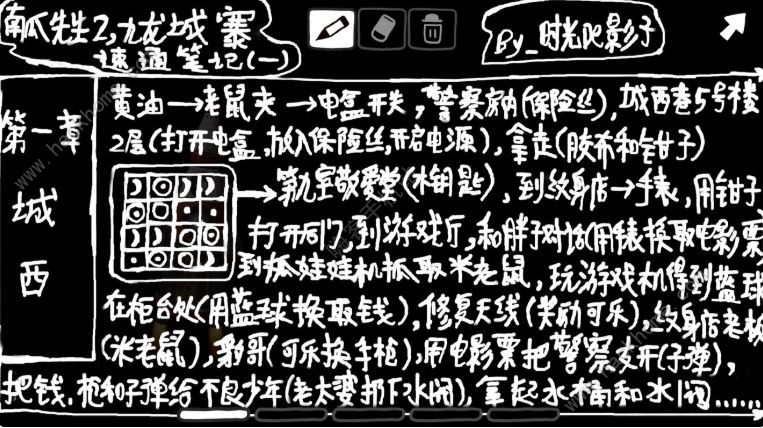 南瓜先生2,九龙城寨
速通笔记(一)
By_时光吧影子
第一章
城
西
黄油→老鼠夹→电盒开关,警察病(保险丝),城西巷5号楼
2层(打开电盒,放入保险丝,开启电源),拿走(胶布和钳子)
→第九室敬爱堂(木钥匙),到纹身店→手表,用钳子
打开后门,到游戏厅,和胖子对话(用表换取电影票
到抓娃娃机抓取米老鼠,玩游戏机得到蓝球
在柜台处(用蓝球换取钱),修复天线(奖励可乐),纹身店老板
(米老鼠),豹哥(可乐换手枪),用电影票把警察支开(子弹),
把钱.枪和子弹给不良少年(老太婆扔下水阀),拿起水桶和水阀......